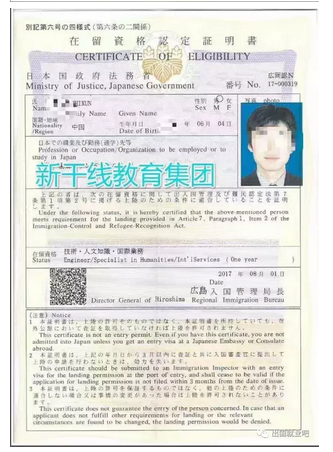 別記第六号の四様式(第六条の二関係)
在留資格認定証明書
CERTIFICATE OF ELIGIBILITY
日本国政府法務省
Ministry of Justice, Japanese Government
番号 No. 17-000319
氏名
Family Name Given Name
性別 男 女
Sex M F
写真 photo
国籍・地域
Nationality
/Region
中国
生年月日
Date of Birth.
06月04日
日本での職業及び勤務(通学)先等
Profession or Occupation/Organization to be employed or to
study in Japan
新干线教育集团
Under the following status, it is hereby certified that the above-mentioned person
meets requirement for the landing provided in Article7, Paragraph1, Item 2 of the
Immigration-Control and Refugee-Recognition Act.
在留資格
Status
技術・人文知識・国際業務
Engineer/Specialist in Humanities/Int'l Services ( One year )
2017年08月01日
広島入国管理局長
Director General of Hiroshima Regional Immigration Bureau
(注意) Notice
1 本証明書は、上陸の許可そのものではなく、
This certificate is not an entry permit. Even if you have this certificate, you are not
admitted into Japan unless you get an entry visa at a Japanese Embassy or Consulate
abroad.
2
This certificate should be submitted to an Immigration Inspector with an entry
visa for landing permission at the port of entry, and shall cease to be valid if the
application for landing permission is not filed within 3 months from the date of issue.
3
This certificate does not guarantee the entry of the person concerned. In case that an
applicant does not fulfill other requirements for landing or the relevant
circumstances are found to be changed, the landing permission would be denied.
出国就业吧